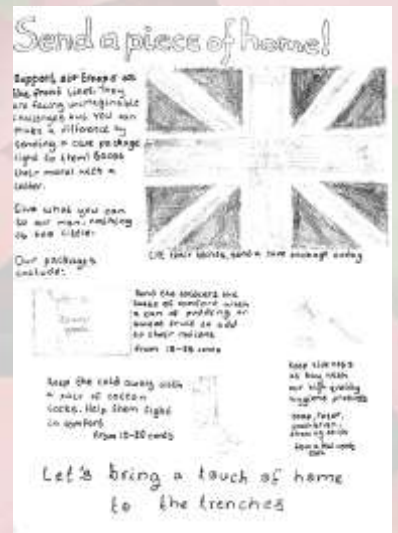 Send a piece of home!
Support our troops on
the front line! They
are facing unimaginable
challenges but you can
make a difference by
sending a care package
right to them! Boost
their moral with a
letter.
Give what you can
to our men, nothing
is too little!
Our packages
include:
Lift their spirits, send a care package today
Send the soldiers the
taste of comfort with
a can of pudding or
sweet fruit to add
to their rations
From 18-25 cents
Keep the cold away with
a pair of cotton
socks. Help them fight
in comfort
From 15-20 cents
Keep illness
at bay with
our high quality
hygiene products
soap, razor,
Let's bring a touch of home
to the trenches